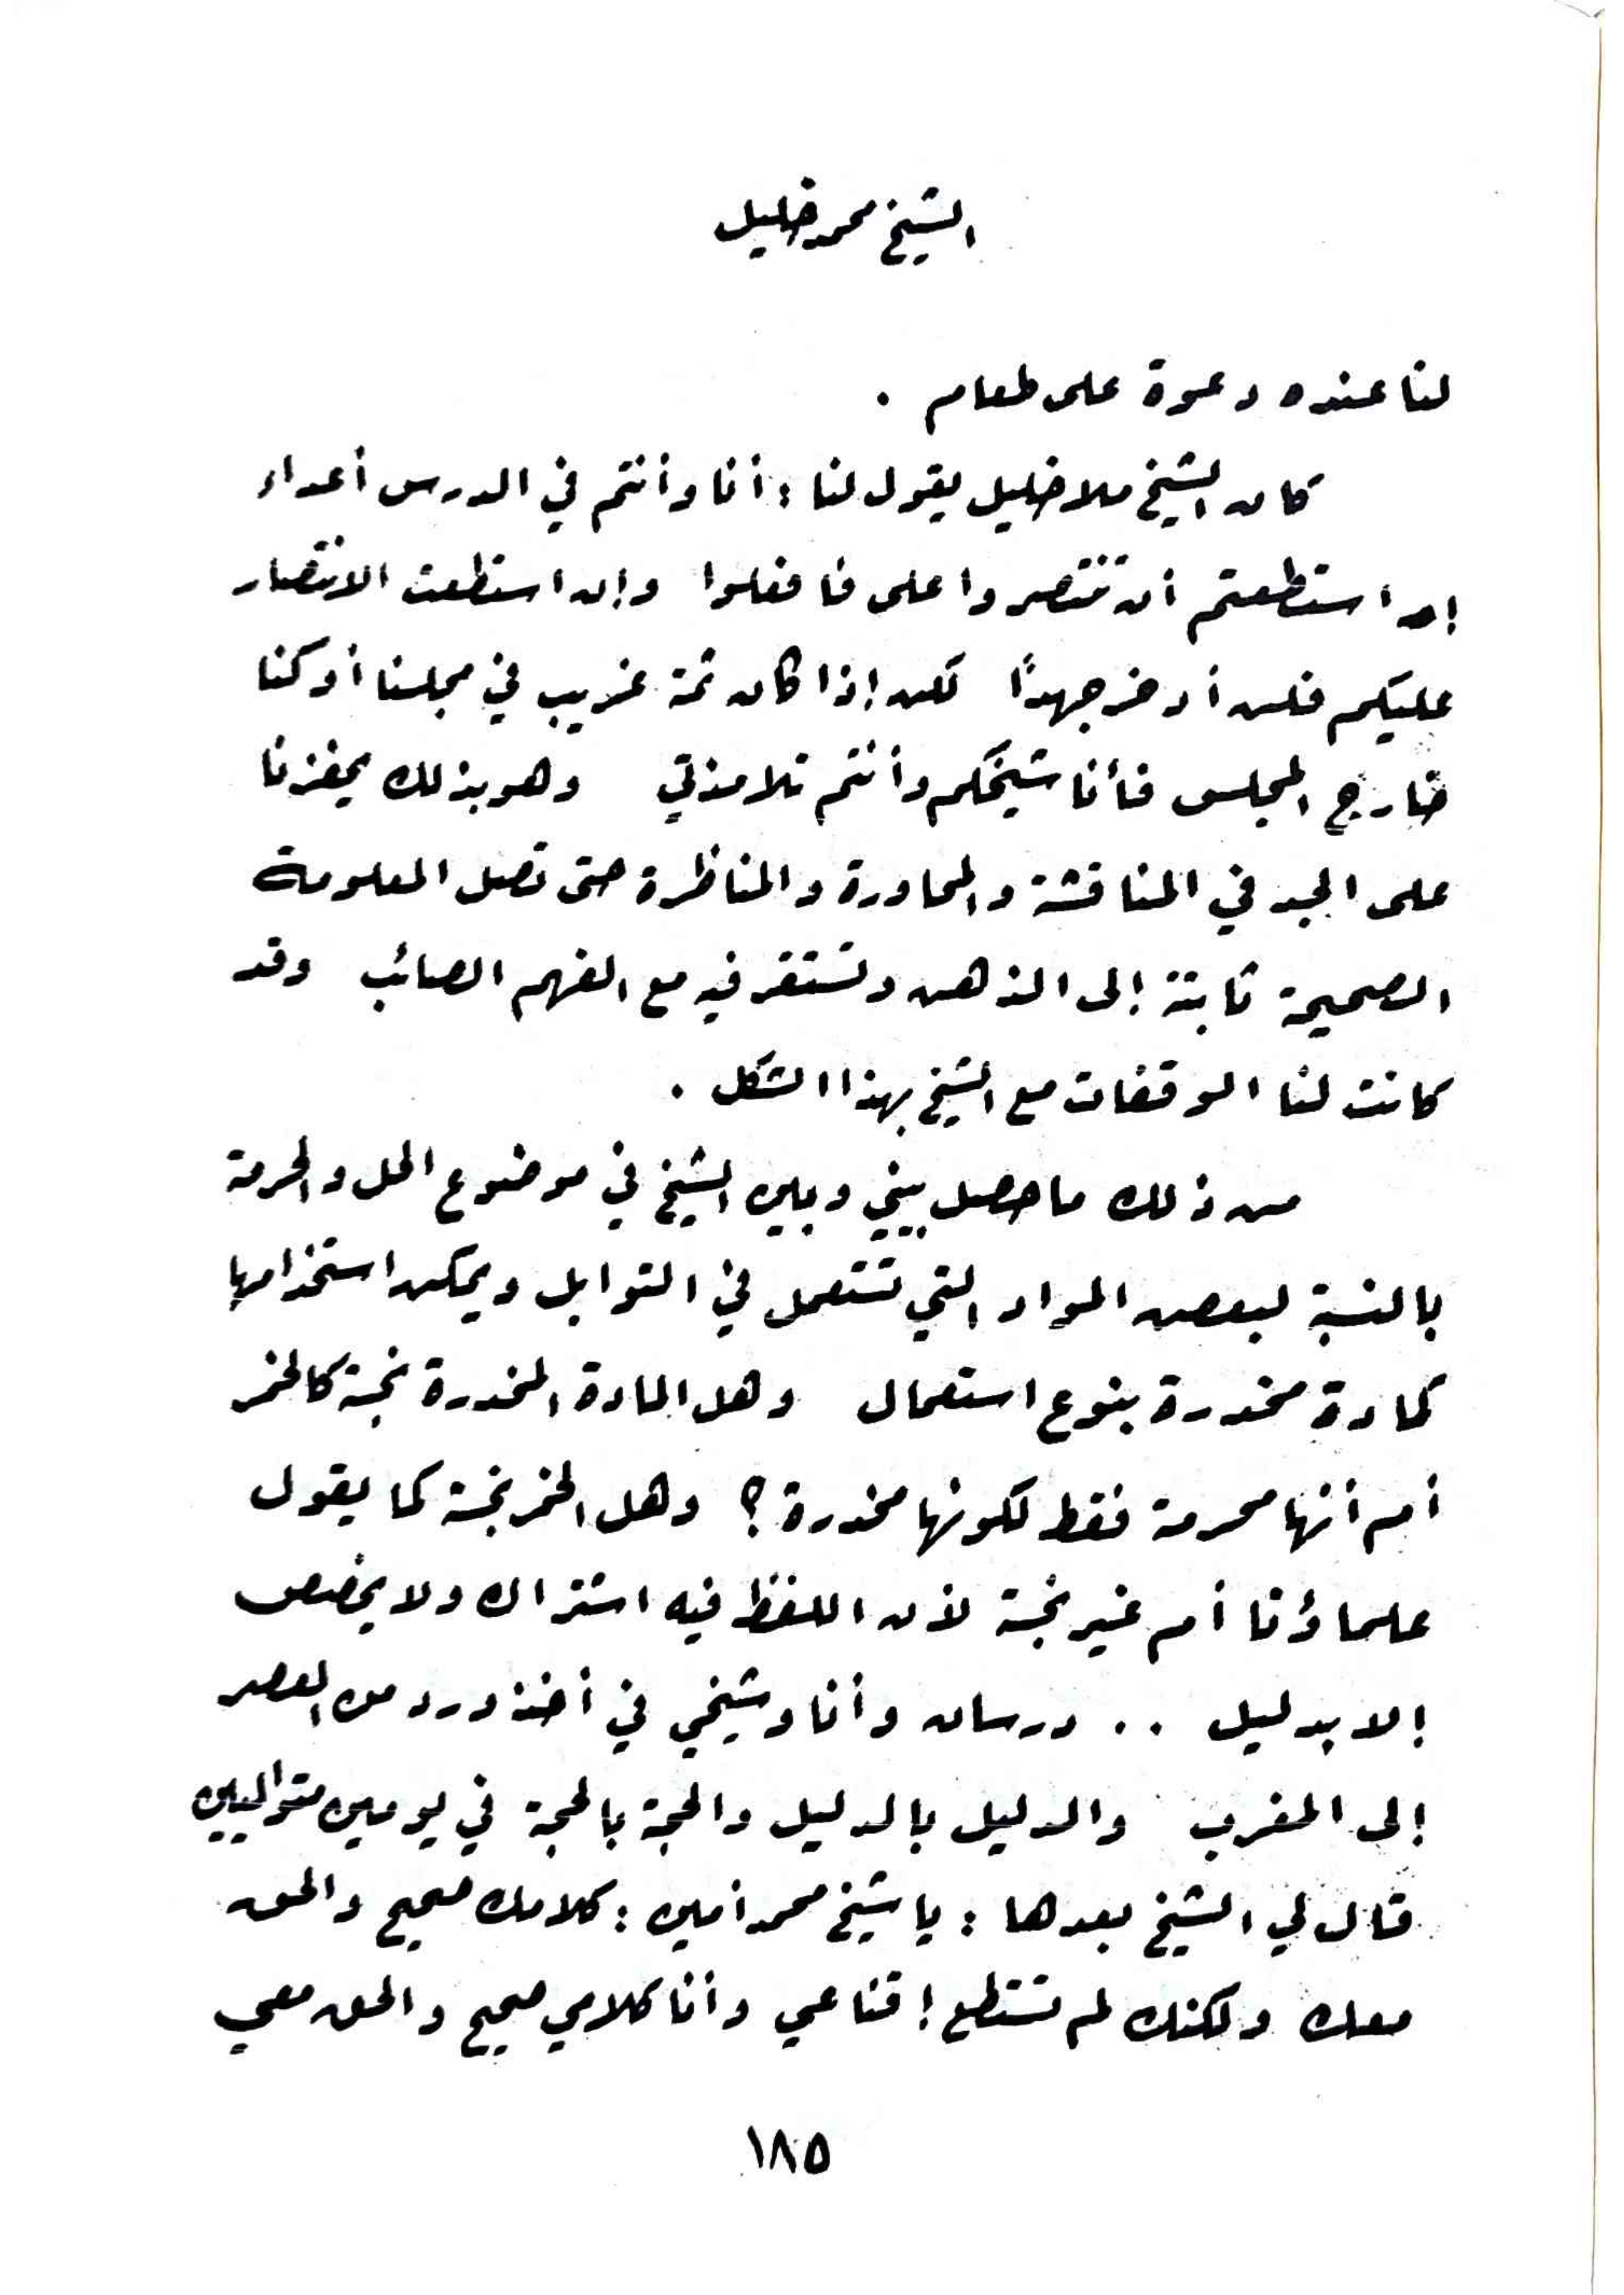 الشيخ محمد خليل
لنا عنده دعوة على طعام .
كان الشيخ ملا خليل يقول لنا : أنا وأنتم في الدرس أعداء
إن استطعتم أن تنتصروا على فافعلوا وإن استطعت الانتصار
عليكم فلن أدخر جهداً لكن إذا كان ثمة غريب في مجلسنا أو كنا
خارج المجلس فأنا شيخكم وأنتم تلامذتي وهو بذلك يحفزنا
على الجد في المناقشة والمحاورة والمناظرة حتى تصل المعلومة
الصحيحة ثابتة إلى الذهن وتستقر فيه مع الفهم الصائب وقد
كانت لنا الوقفات مع الشيخ بهذا الشكل .
من ذلك ما حصل بيني وبين الشيخ في موضوع الحل والحرمة
بالنسبة لبعض المواد التي تستعمل في التوابل ويمكن استخدامها
كمادة مخدرة بنوع استعمال وهل المادة المخدرة نجسة كالخمر
أم أنها محرمة فقط لكونها مخدرة ؟ وهل الخمر نجسة كما يقول
علماؤنا أم غير نجسة لأن اللفظ فيه اشتراك ولا يخصص
إلا بدليل .. درسان وأنا وشيخي في أخذ ورد من العصر
إلى المغرب والدليل بالدليل والحجة بالحجة في يومين متواليين
قال لي الشيخ بعدها : يا شيخ محمد أمين : كلامك صحيح والحق
معك ولكنك لم تستطع إقناعي وأنا كلامي صحيح والحق معي
١٨٥